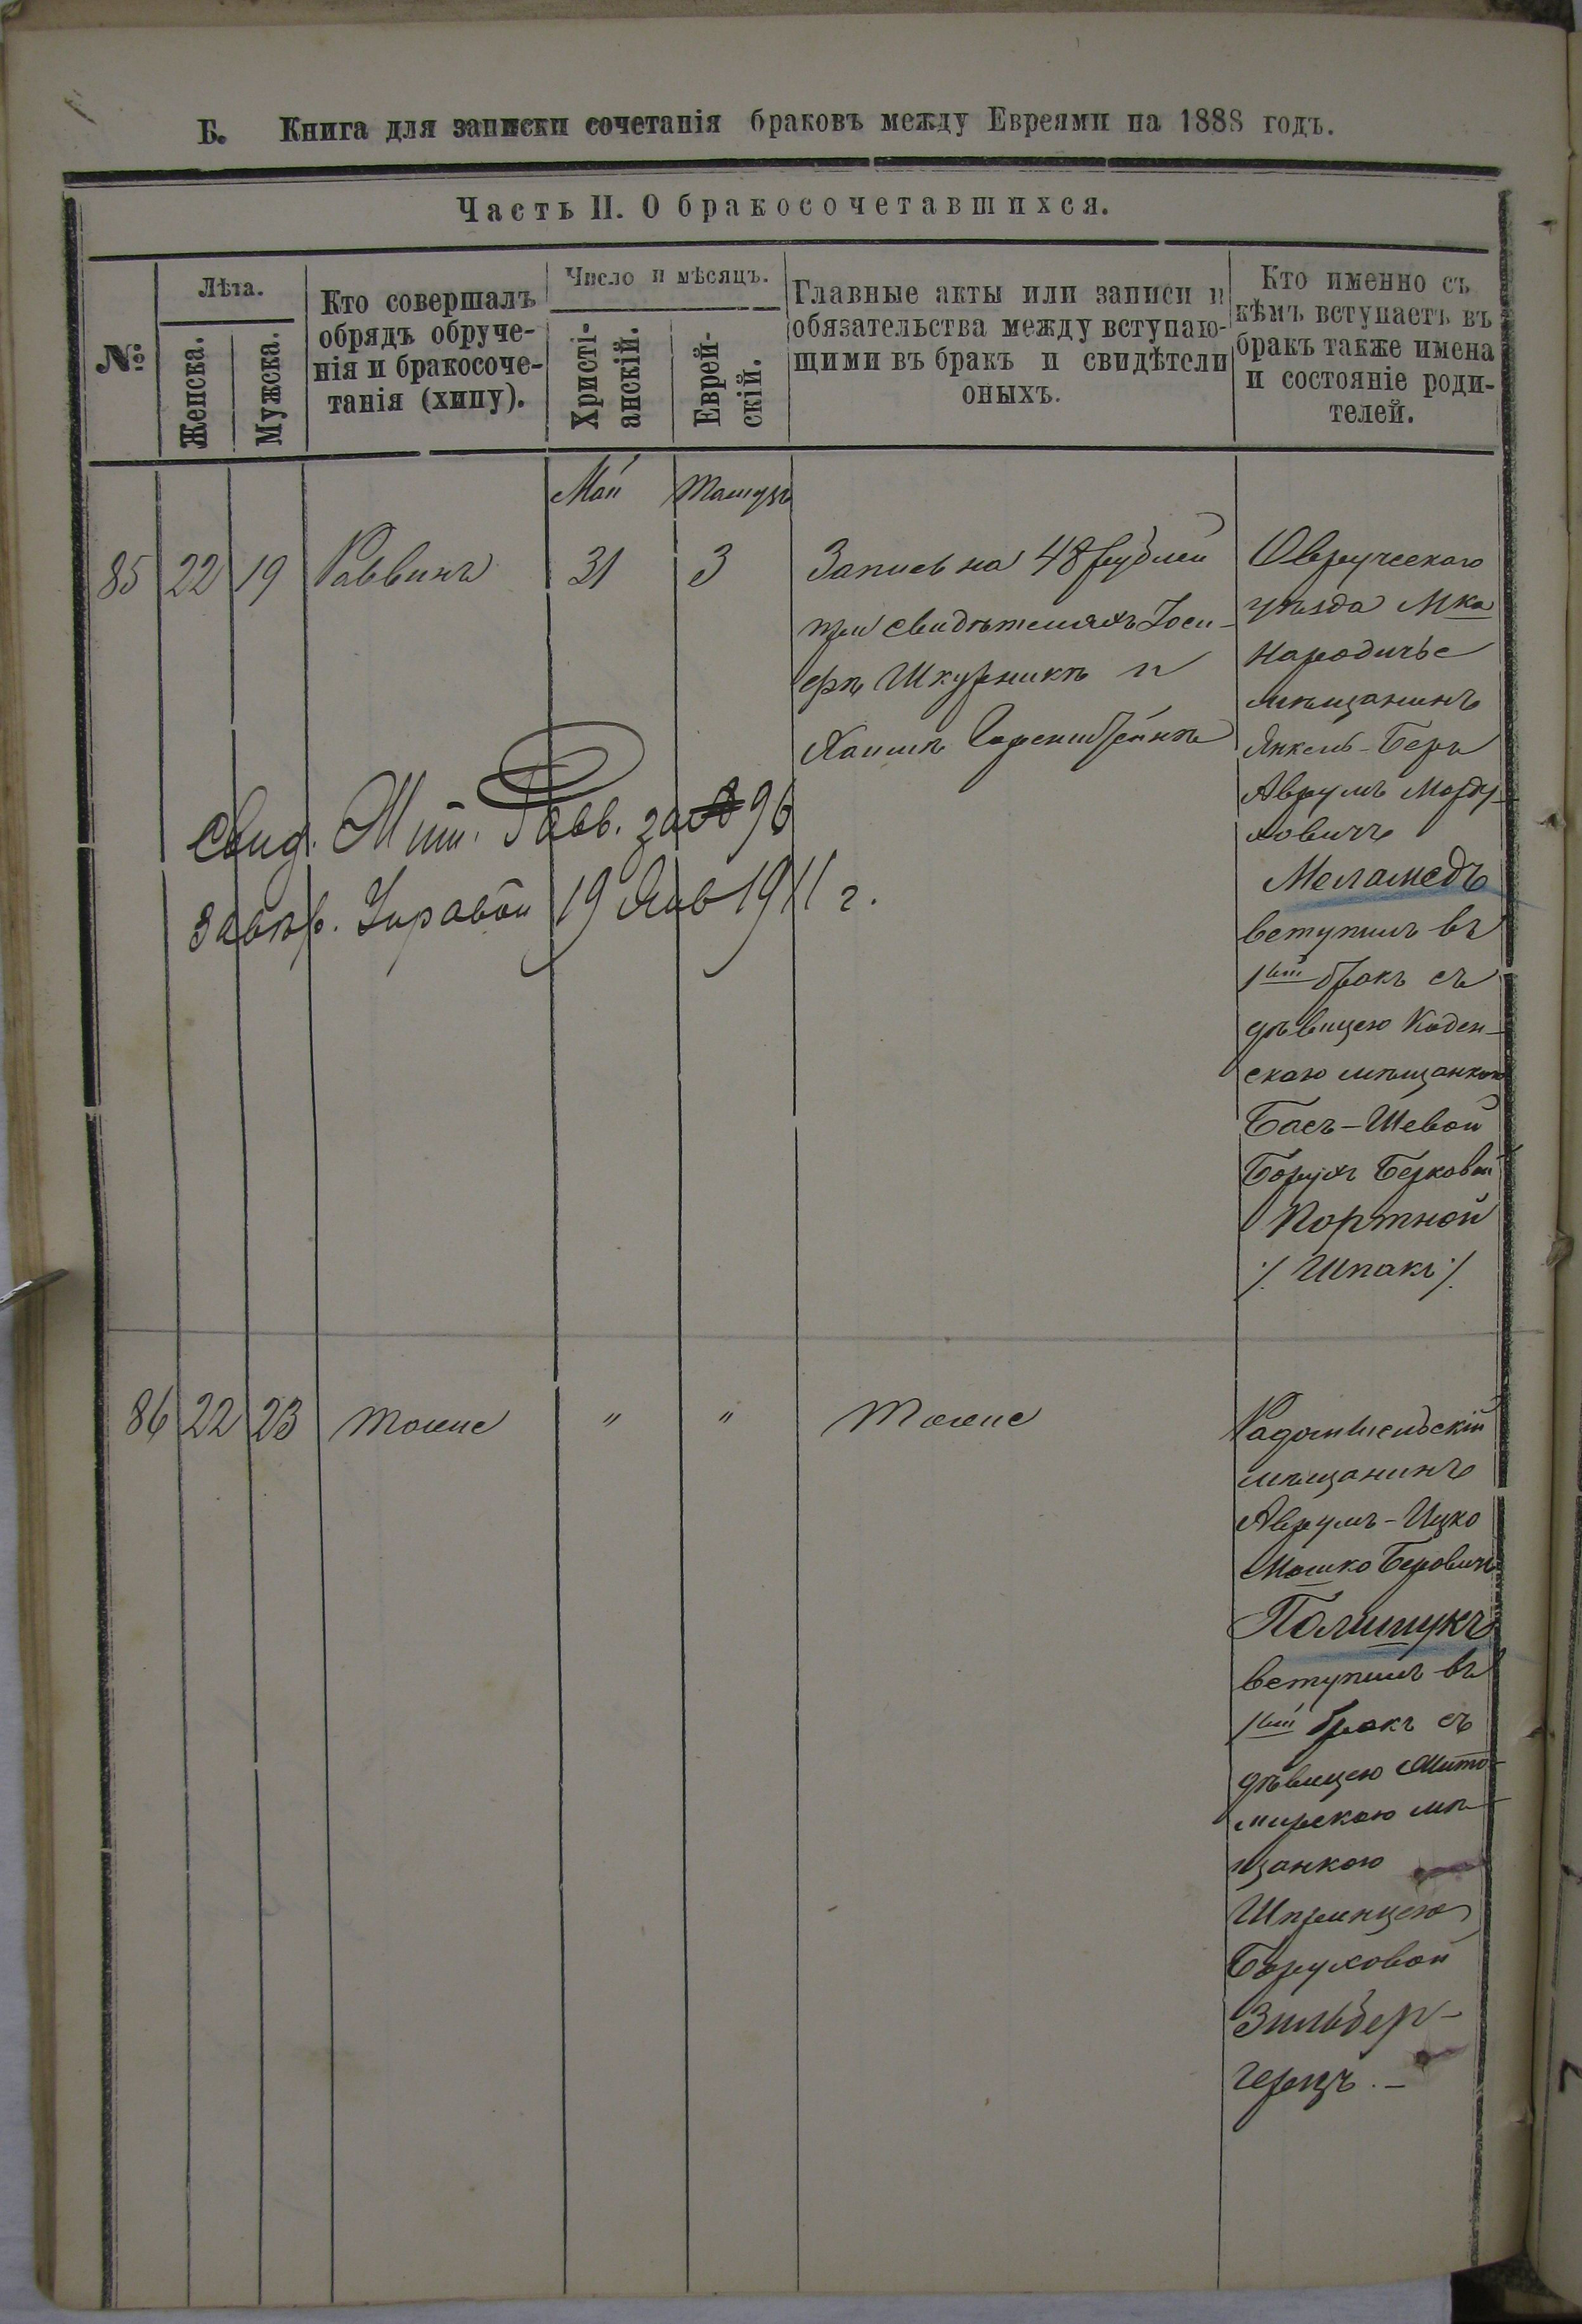 Б. Книга для записки сочетанія браковъ между Евреями на 1888 годъ.
Часть II. О бракосочетавшихся.
№
Лѣта.
Женска.
Мужска.
Кто совершалъ
обрядъ обруче-
нія и бракосоче-
танія (хипу).
Число и мѣсяцъ.
Христі-
анскій.
Еврей-
скій.
Главные акты или записи и
обязательства между вступаю-
щими въ бракъ и свидѣтели
оныхъ.
Кто именно съ
кѣмъ вступаетъ въ
бракъ также имена
и состояніе роди-
телей.
Май Тамузъ
85 22 19 Раввинъ 31 3
Запись на 48 рублей
при свидѣтеляхъ Іоси-
фѣ Шкурникѣ и
Хаимѣ Горенштейнѣ
Овручскаго
уѣзда М-ка
Народичье
мѣщанинъ
Янкель-Беръ
Аврумъ Морду-
ховичъ
Меламедъ
вступилъ въ
1-ый бракъ съ
дѣвицею Коден-
скою мѣщанкою
Бася-Шевой
Борухъ Берковой
Портной
/. Шпакъ ./
Свид. Жит. Равв. за № 96
завѣр. Управой 19 Янв 1911 г.
86 22 23 тоже " " Тоже
Радомысльскій
мѣщанинъ
Аврумъ-Ицко
Мошко Беровичъ
Полищукъ
вступилъ въ
1-ый бракъ съ
дѣвицею Жито-
мирскою мѣ-
щанкою
Шпринцею
Боруховой
Зильбер-
герцъ. –